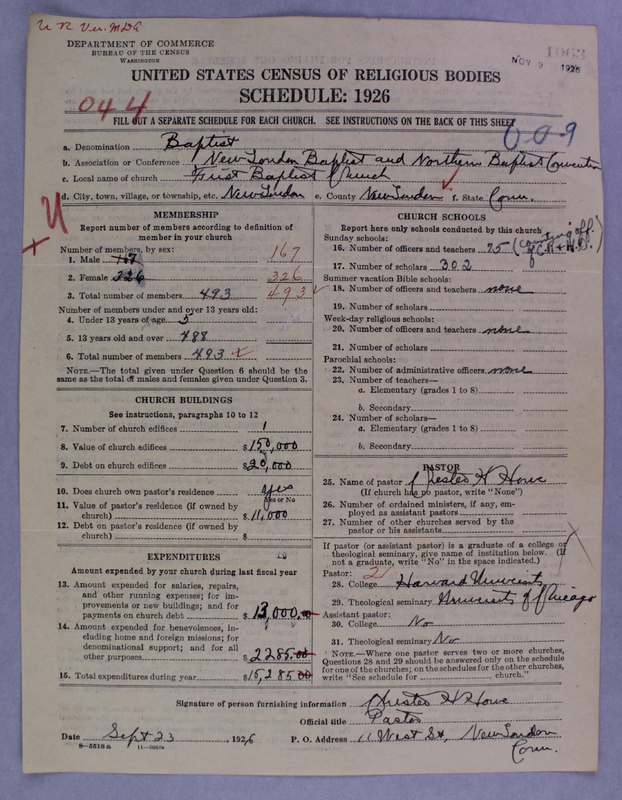 U R Ver. MDG
DEPARTMENT OF COMMERCE
BUREAU OF THE CENSUS
WASHINGTON
NOV 9 1926
UNITED STATES CENSUS OF RELIGIOUS BODIES
SCHEDULE: 1926
044
FILL OUT A SEPARATE SCHEDULE FOR EACH CHURCH. SEE INSTRUCTIONS ON THE BACK OF THIS SHEET
009
a. Denomination Baptist
b. Association or Conference New London Baptist and Northern Baptist Convention
c. Local name of church First Baptist Church
d. City, town, village, or township, etc. New London e. County New London f. State Conn.
MEMBERSHIP
Report number of members according to definition of
member in your church
Number of members, by sex:
1. Male 167 167
2. Female 326 326
3. Total number of members 493 493
Number of members under and over 13 years old:
4. Under 13 years of age 5
5. 13 years old and over 488
6. Total number of members 493
NOTE.—The total given under Question 6 should be the
same as the total of males and females given under Question 3.
CHURCH BUILDINGS
See instructions, paragraphs 10 to 12
7. Number of church edifices 1
8. Value of church edifices $150,000
9. Debt on church edifices $20,000
10. Does church own pastor's residence yes
Yes or No
11. Value of pastor's residence (if owned by
church) $11,000
12. Debt on pastor's residence (if owned by
church) $
EXPENDITURES
Amount expended by your church during last fiscal year
13. Amount expended for salaries, repairs,
and other running expenses; for im-
provements or new buildings; and for
payments on church debt $13,000.00
14. Amount expended for benevolences, in-
cluding home and foreign missions; for
denominational support; and for all
other purposes $2285.00
15. Total expenditures during year $15,285.00
CHURCH SCHOOLS
Report here only schools conducted by this church
Sunday schools:
16. Number of officers and teachers 25
17. Number of scholars 302
Summer vacation Bible schools:
18. Number of officers and teachers none
19. Number of scholars
Week-day religious schools:
20. Number of officers and teachers none
21. Number of scholars
Parochial schools:
22. Number of administrative officers none
23. Number of teachers—
a. Elementary (grades 1 to 8)
b. Secondary
24. Number of scholars—
a. Elementary (grades 1 to 8)
b. Secondary
PASTOR
25. Name of pastor Chester H Howe
(If church has no pastor, write "None")
26. Number of ordained ministers, if any, em-
ployed as assistant pastors
27. Number of other churches served by the
pastor or his assistants
If pastor (or assistant pastor) is a graduate of a college or
theological seminary, give name of institution below. (If
not a graduate, write "No" in the space indicated.)
Pastor:
28. College Harvard University
29. Theological seminary University of Chicago
Assistant pastor:
30. College No
31. Theological seminary No
NOTE.—Where one pastor serves two or more churches,
Questions 28 and 29 should be answered only on the schedule
for one of the churches; on the schedules for the other churches,
write "See schedule for church."
Signature of person furnishing information Chester H Howe
Official title Pastor
Date Sept 23, 1926 P. O. Address 11 West St, New London
Conn.
8—5518a 11—0050a